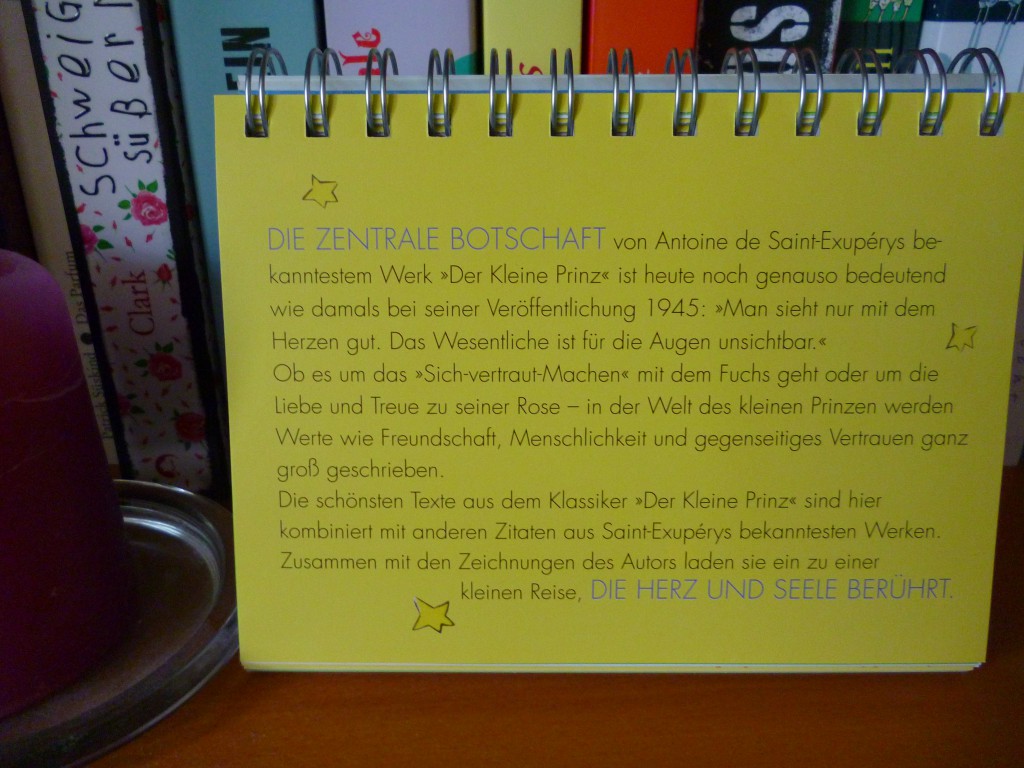 Schweig
süßer
Clark
Das Parfum
DIE ZENTRALE BOTSCHAFT von Antoine de Saint-Exupérys be-
kanntestem Werk »Der Kleine Prinz« ist heute noch genauso bedeutend
wie damals bei seiner Veröffentlichung 1945: »Man sieht nur mit dem
Herzen gut. Das Wesentliche ist für die Augen unsichtbar.«
Ob es um das »Sich-vertraut-Machen« mit dem Fuchs geht oder um die
Liebe und Treue zu seiner Rose – in der Welt des kleinen Prinzen werden
Werte wie Freundschaft, Menschlichkeit und gegenseitiges Vertrauen ganz
groß geschrieben.
Die schönsten Texte aus dem Klassiker »Der Kleine Prinz« sind hier
kombiniert mit anderen Zitaten aus Saint-Exupérys bekanntesten Werken.
Zusammen mit den Zeichnungen des Autors laden sie ein zu einer
kleinen Reise, DIE HERZ UND SEELE BERÜHRT.